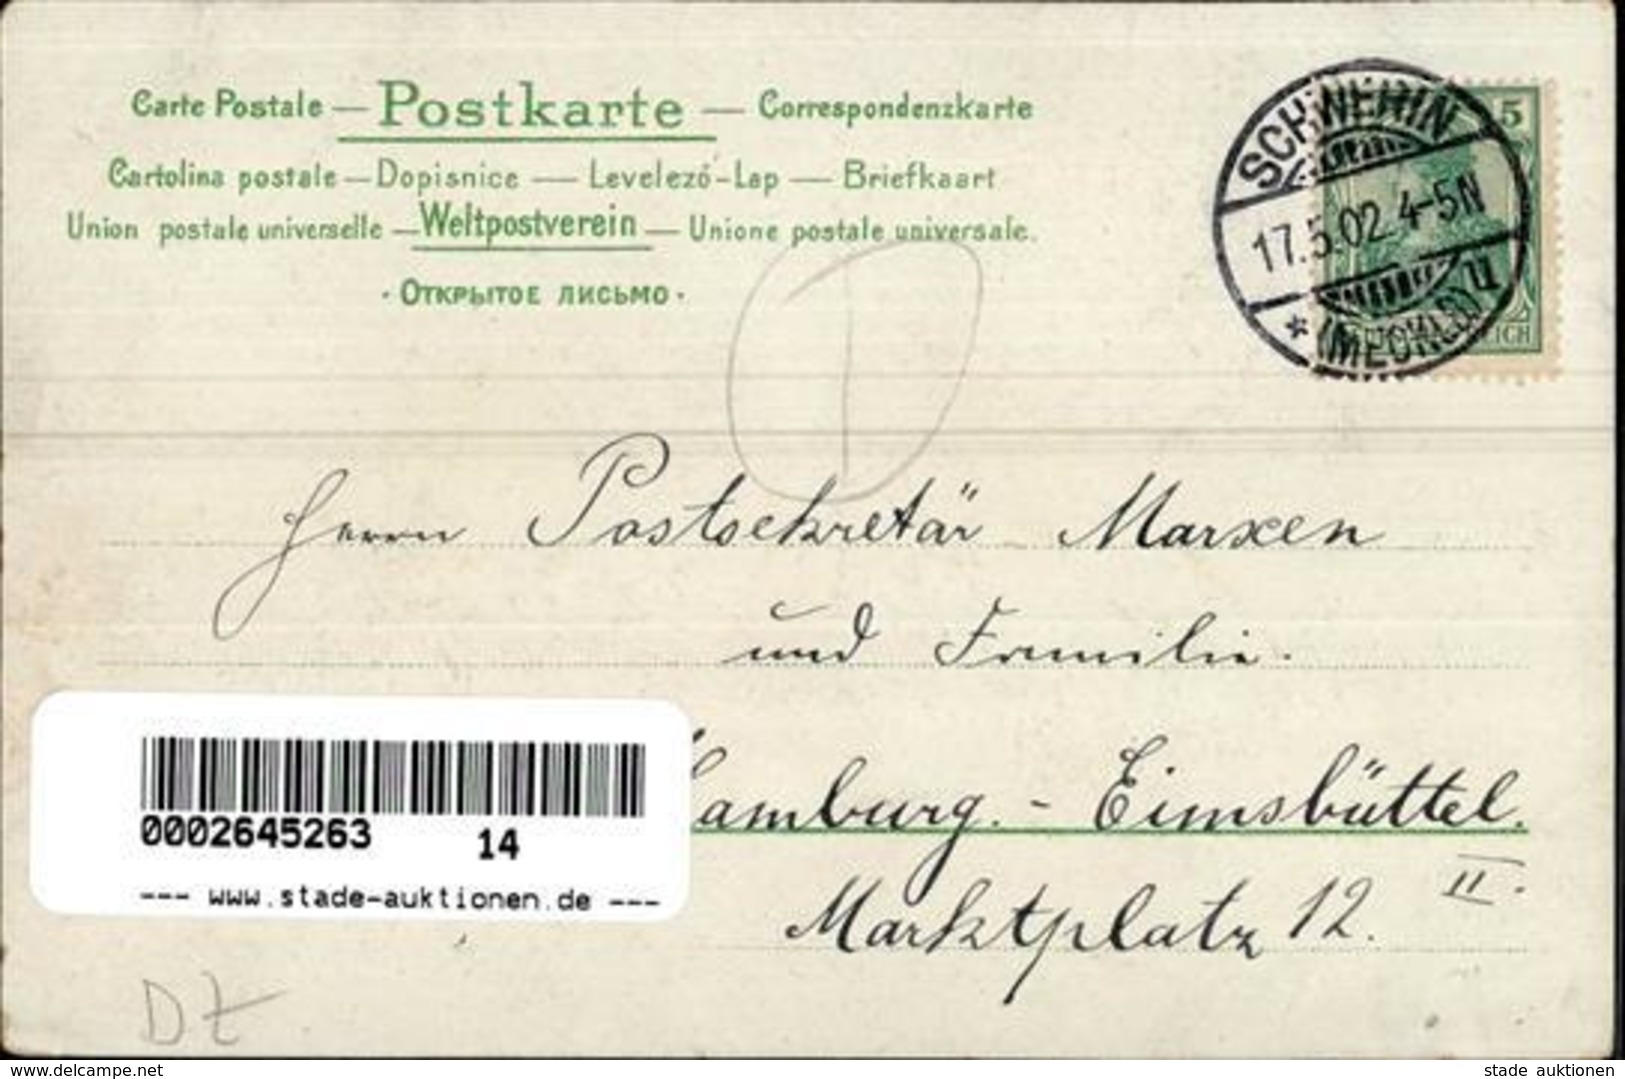 Carte Postale — Postkarte — Correspondenzkarte
Cartolina postale — Dopisnice — Levelező-Lap — Briefkaart
Union postale universelle — Weltpostverein — Unione postale universale.
· Открытое письмо ·
SCHWERIN
17.5.02 4-5N
* (MECKLB) u
5
ICH
Herrn Postsekretär Marxen
und Familie.
Hamburg. - Eimsbüttel.
Marktplatz 12. II.
0002645263 14
--- www.stade-auktionen.de ---
DZ
www.delcampe.net
stade auktionen